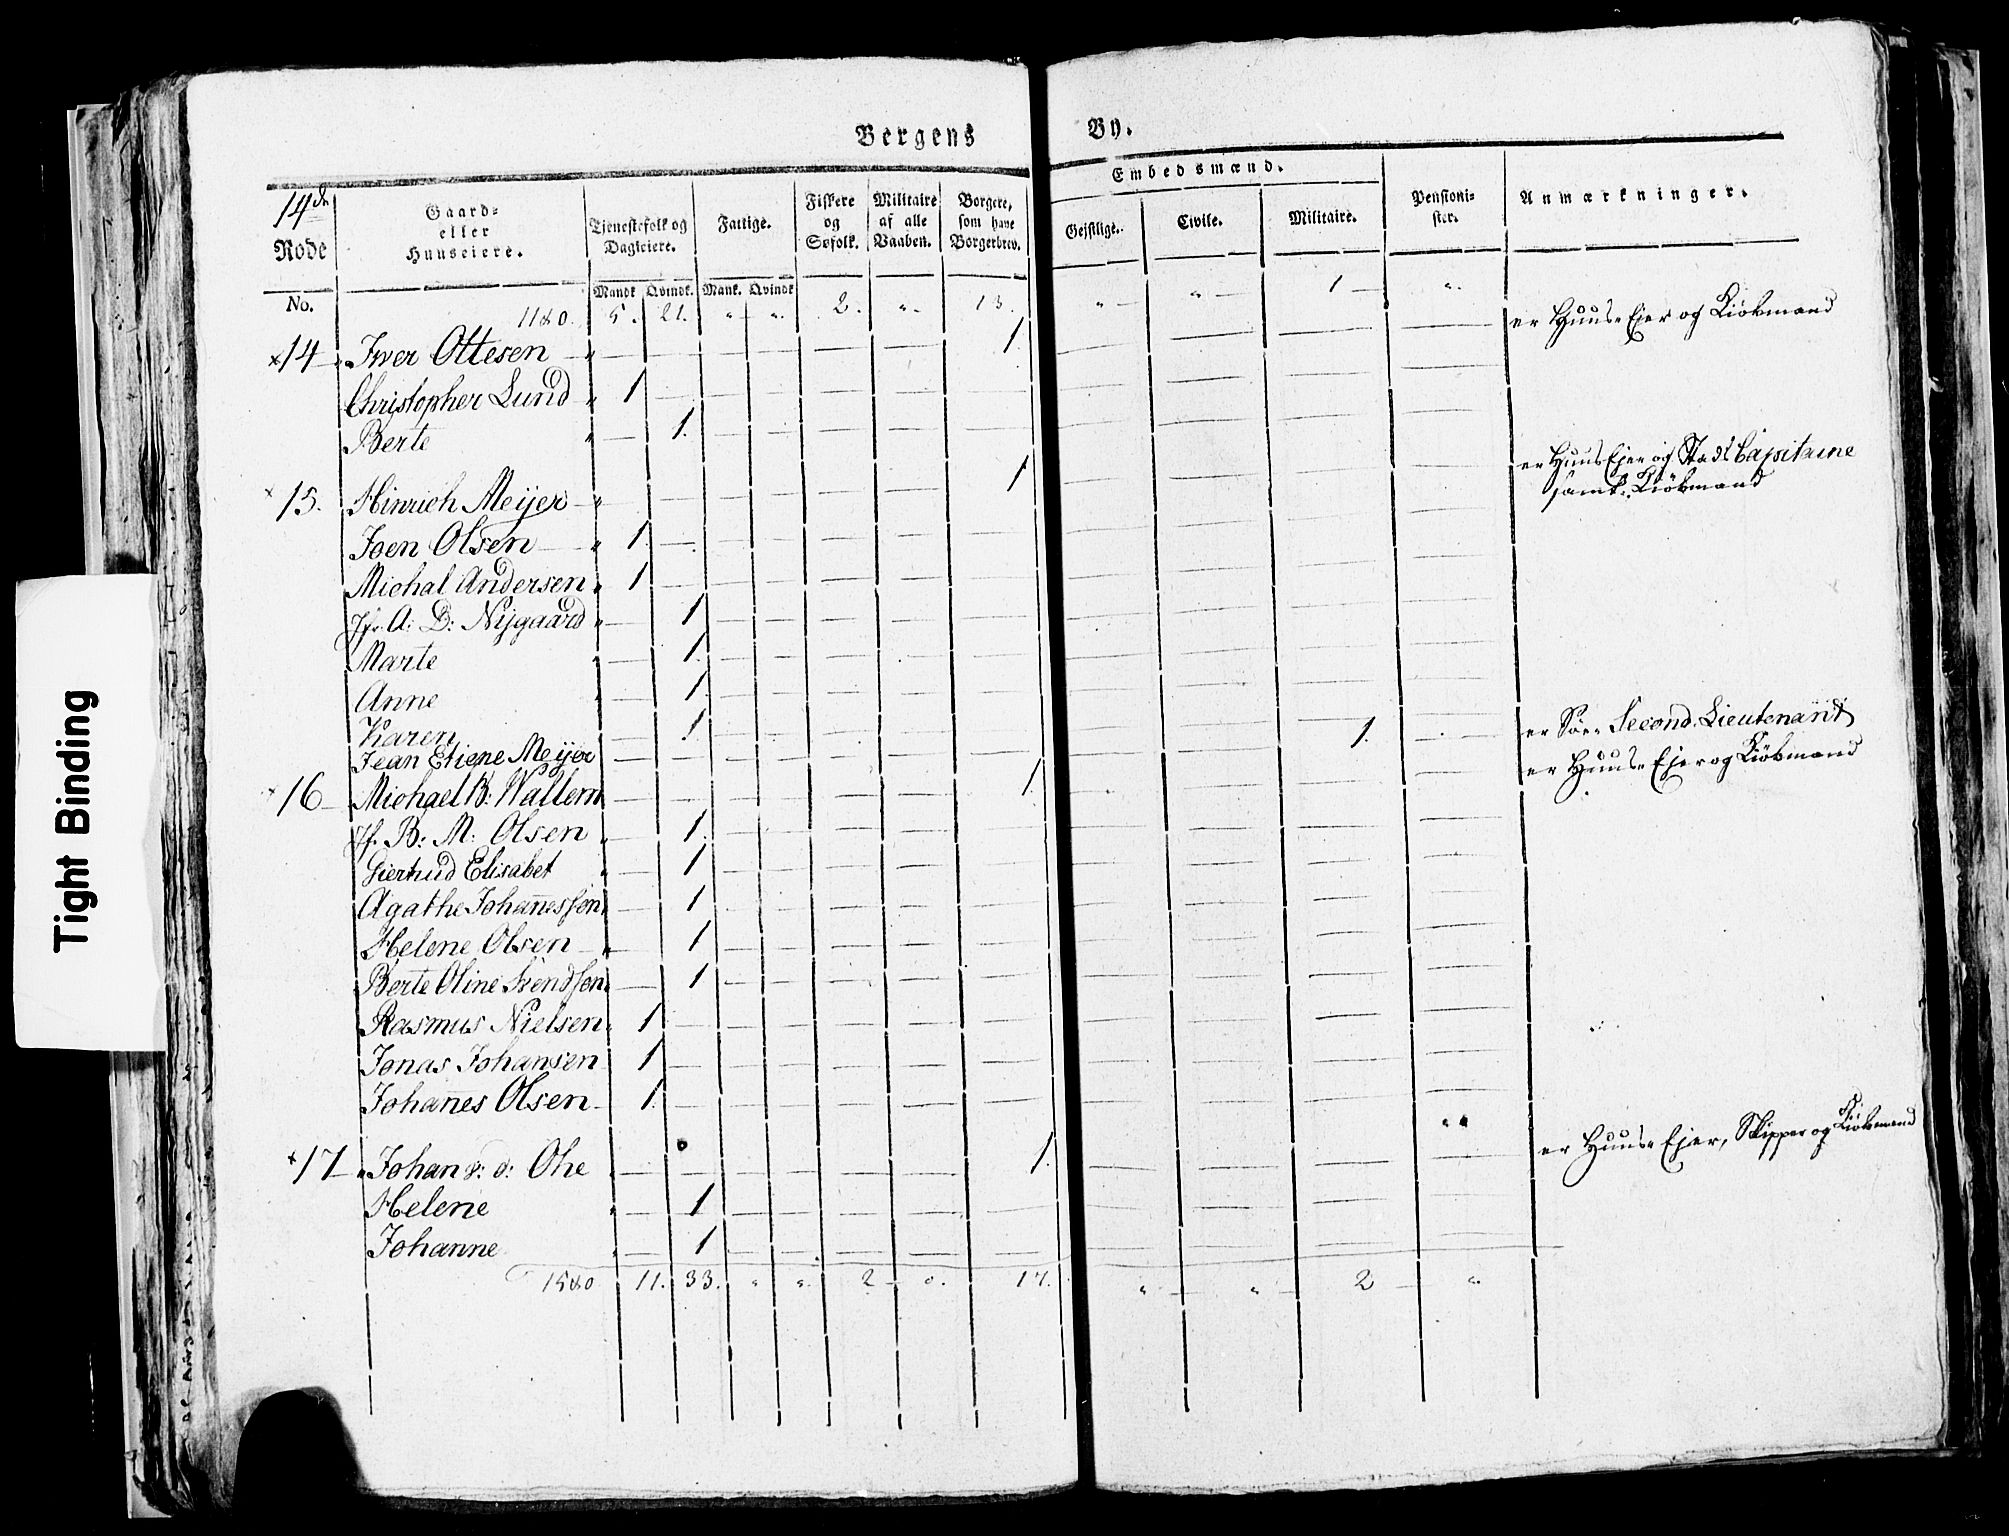 Bergens By.
Embedsmænd.
14de
Rode
Gaard-
eller
Huuseiere.
Tjenestefolk og
Dagleiere.
Fattige.
Fiskere
og
Søfolk.
Militaire
af alle
Vaaben.
Borgere,
som have
Borgerbrev.
Geistlige.
Civile.
Militaire.
Pensioni-
ster.
Anmærkninger.
No.
Mandk. Qvindk. Mank. Qvindk
5. 21. " " 2. " 13. " " 1 "
×14 Iver Ottesen 1. er Huus-Ejer og Kiøbmand
Christopher Lund 1
Berte 1.
× 15. Hinrich Meijer 1 er Huus Ejer og Stads Capitaine
samt Kiøbmand
Joen Olsen 1.
Michal Andersen 1
Jfr. A: D: Nijgaard 1.
Marte 1.
Anne 1.
Karen 1.
Jean Etiene Meijer 1. er Søe- Second-Lieutenant
× 16 Michael B: Wallem 1. er Huus- Ejer og Kiøbmand
Jf. B: M: Olsen 1.
Giertrud Elisabet 1
Agathe Johanesson 1
Helene Olsen 1
Berte Oline Svendson 1
Rasmus Nielsen 1
Jonas Johansen 1
Johanes Olsen 1.
×17 Johan 1. er Huus- Ejer, Skipper og Kiøbmand
Helene 1
Johanne 1
11. 33. " " 2 17. " " 2 "
Tight Binding